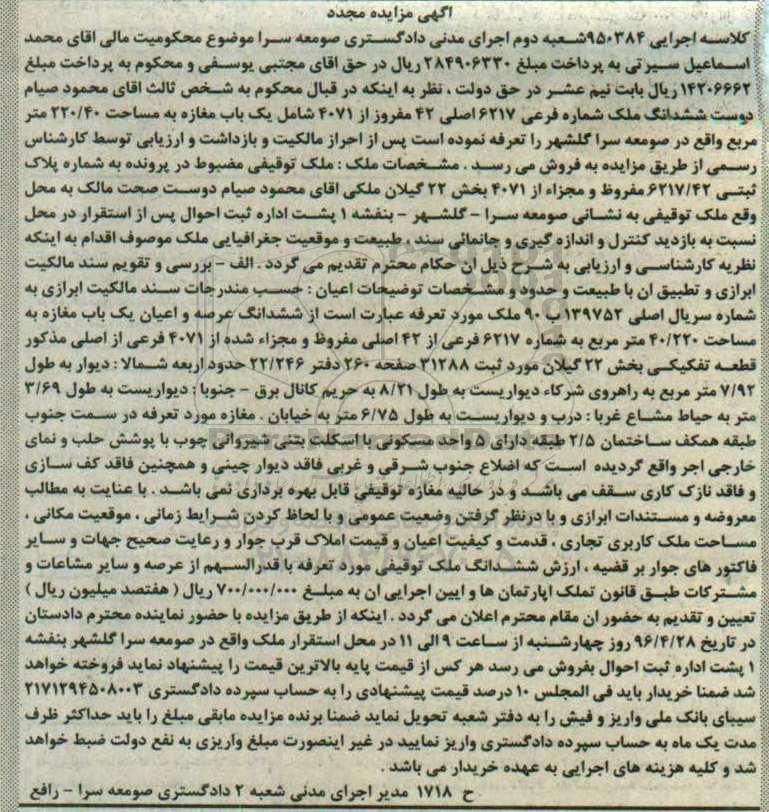 آگهی مزایده مجدد
کلاسه اجرایی ۹۵۰۳۸۴شعبه دوم اجرای مدنی دادگستری صومعه سرا موضوع محکومیت مالی اقای محمد
اسماعیل سیرتی به پرداخت مبلغ ۲۸۴۹۰۶۳۳۰ ریال در حق اقای مجتبی یوسفی و محکوم به پرداخت مبلغ
۱۴۲۰۶۶۶۲ ریال بابت نیم عشر در حق دولت ، نظر به اینکه در قبال محکوم به شخص ثالث اقای محمود صیام
دوست ششدانگ ملک شماره فرعی ۶۲۱۷ اصلی ۴۲ مفروز از ۴۰۷۱ شامل یک باب مغازه به مساحت ۲۲۰/۴۰ متر
مربع واقع در صومعه سرا گلشهر را تعرفه نموده است پس از احراز مالکیت و بازداشت و ارزیابی توسط کارشناس
رسمی از طریق مزایده به فروش می رسد . مشخصات ملک : ملک توقیفی مضبوط در پرونده به شماره پلاک
ثبتی ۶۲۱۷/۴۲ مفروظ و مجزاء از ۴۰۷۱ بخش ۲۲ گیلان ملکی اقای محمود صیام دوست صحت مالک به محل
وقع ملک توقیفی به نشانی صومعه سرا - گلشهر - بنفشه ۱ پشت اداره ثبت احوال پس از استقرار در محل
نسبت به بازدید کنترل و اندازه گیری و جانمائی سند ، طبیعت و موقعیت جغرافیایی ملک موصوف اقدام به اینکه
نظریه کارشناسی و ارزیابی به شرح ذیل ان حکام محترم تقدیم می گردد . الف - بررسی و تقویم سند مالکیت
ابرازی و تطبیق ان با طبیعت و حدود و مشخصات توضیحات اعیان : حسب مندرجات سند مالکیت ابرازی به
شماره سریال اصلی ۱۳۹۷۵۲ ب ۹۰ ملک مورد تعرفه عبارت است از ششدانگ عرصه و اعیان یک باب مغازه به
مساحت ۴۰/۲۲۰ متر مربع به شماره ۶۲۱۷ فرعی از ۴۲ اصلی مفروظ و مجزاء شده از ۴۰۷۱ فرعی از اصلی مذکور
قطعه تفکیکی بخش ۲۲ گیلان مورد ثبت ۳۱۲۸۸ صفحه ۲۶۰ دفتر ۲۲/۲۴۶ حدود اربعه شمالا : دیوار به طول
۷/۹۲ متر مربع به راهروی شرکاء دیواریست به طول ۸/۲۱ به حریم کانال برق - جنوبا : دیواریست به طول ۳/۶۹
متر به حیاط مشاع غربا : درب و دیواریست به طول ۶/۷۵ متر به خیابان . مغازه مورد تعرفه در سمت جنوب
طبقه همکف ساختمان ۲/۵ طبقه دارای ۵ واحد مسکونی با اسکلت بتنی شیروانی چوب با پوشش حلب و نمای
خارجی اجر واقع گردیده است که اضلاع جنوب شرقی و غربی فاقد دیوار چینی و همچنین فاقد کف سازی
و فاقد نازک کاری سقف می باشد و در حالیه مغازه توقیفی قابل بهره برداری نمی باشد . با عنایت به مطالب
معروضه و مستندات ابرازی و با درنظر گرفتن وضعیت عمومی و با لحاظ کردن شرایط زمانی ، موقعیت مکانی ،
مساحت ملک کاربری تجاری ، قدمت و کیفیت اعیان و قیمت املاک قرب جوار و رعایت صحیح جهات و سایر
فاکتور های جوار بر قضیه ، ارزش ششدانگ ملک توقیفی مورد تعرفه با قدرالسهم از عرصه و سایر مشاعات و
مشترکات طبق قانون تملک اپارتمان ها و ایین اجرایی ان به مبلغ ۷۰۰/۰۰۰/۰۰۰ ریال ( هفتصد میلیون ریال )
تعیین و تقدیم به حضور ان مقام محترم اعلان می گردد . اینکه از طریق مزایده با حضور نماینده محترم دادستان
در تاریخ ۹۶/۴/۲۸ روز چهارشنبه از ساعت ۹ الی ۱۱ در محل استقرار ملک واقع در صومعه سرا گلشهر بنفشه
۱ پشت اداره ثبت احوال بفروش می رسد هر کس از قیمت پایه بالاترین قیمت را پیشنهاد نماید فروخته خواهد
شد ضمنا خریدار باید فی المجلس ۱۰ درصد قیمت پیشنهادی را به حساب سپرده دادگستری ۲۱۷۱۲۹۴۵۰۸۰۰۳
سیبای بانک ملی واریز و فیش را به دفتر شعبه تحویل نماید ضمنا برنده مزایده مابقی مبلغ را باید حداکثر ظرف
مدت یک ماه به حساب سپرده دادگستری واریز نمایید در غیر اینصورت مبلغ واریزی به نفع دولت ضبط خواهد
شد و کلیه هزینه های اجرایی به عهده خریدار می باشد .
ح ۱۷۱۸ مدیر اجرای مدنی شعبه ۲ دادگستری صومعه سرا - رافع